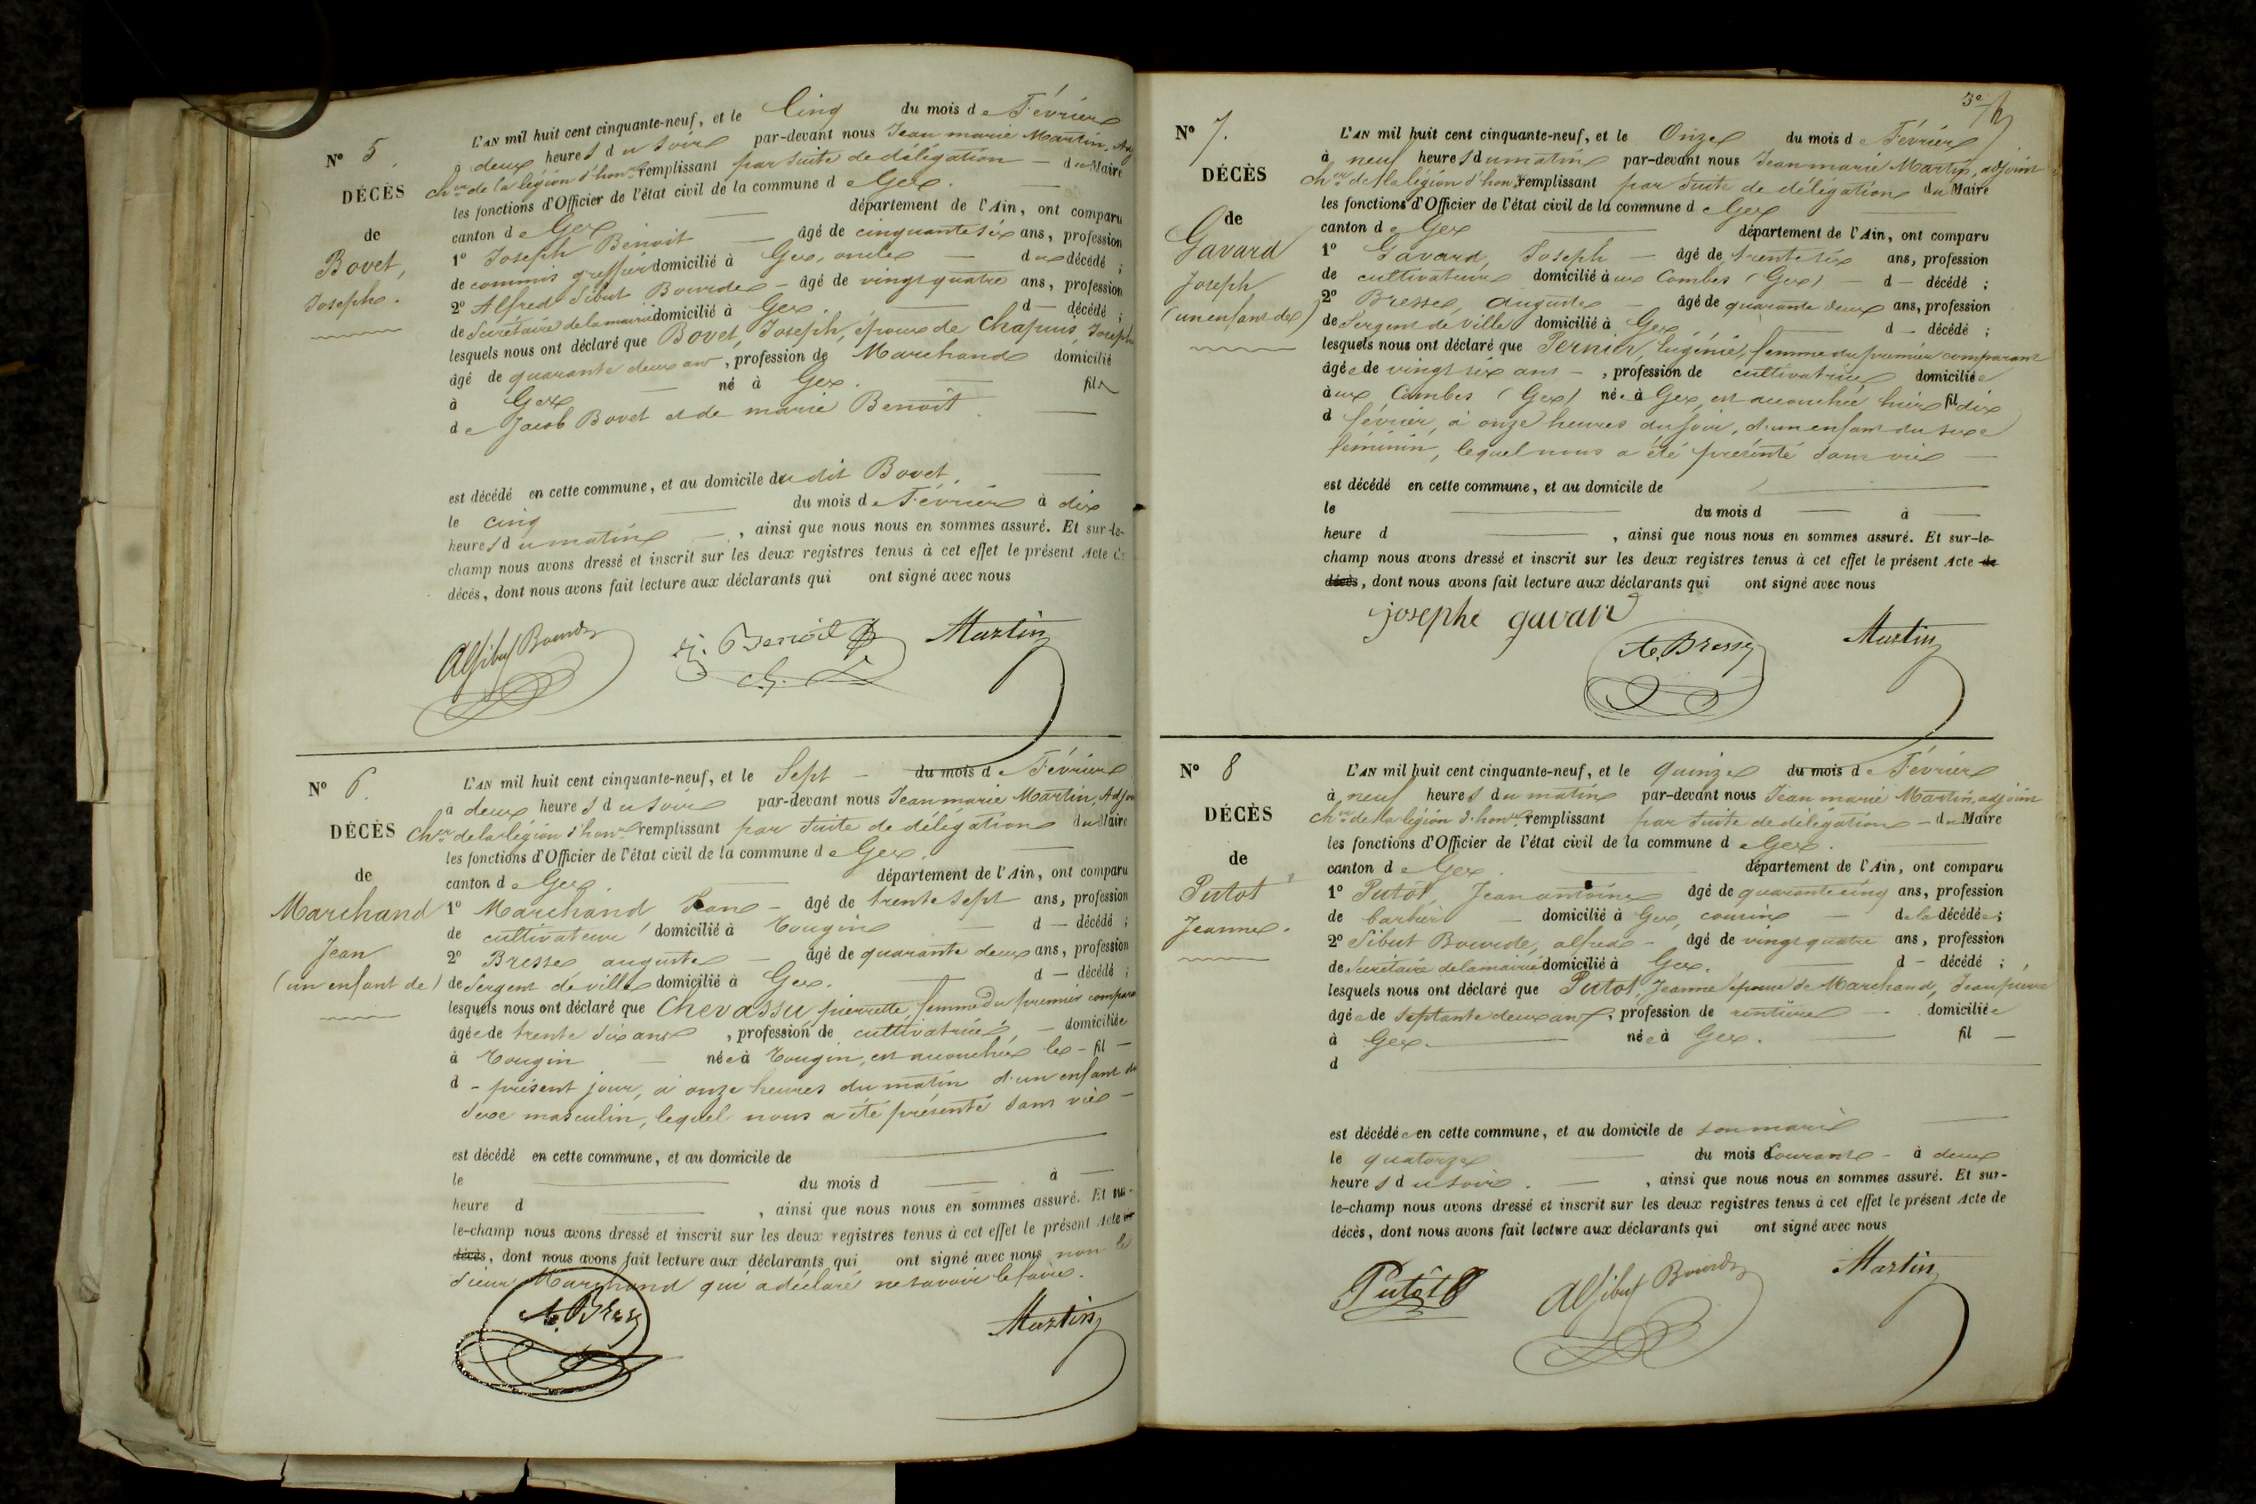 N° 5.
DÉCÈS
de
Bovet,
Joseph.
L'AN mil huit cent cinquante-neuf, et le Cinq du mois de Février
à deux heures du soir par-devant nous Jean marie Martin, Adj
Ch.er de la légion d'hon.r remplissant par suite de délégation — du Maire
les fonctions d'Officier de l'état civil de la commune de Gex.
canton de Gex département de l'Ain, ont comparu
1° Joseph Benoit âgé de cinquante six ans, profession
de commis greffier domicilié à Gex, oncle — du décédé ;
2° Alfred Sibut Bourde — âgé de vingt quatre ans, profession
de Secrétaire de la mairie domicilié à Gex. d — décédé ;
lesquels nous ont déclaré que Bovet, Joseph, époux de Chapuis, Joseph
âgé de quarante deux ans, profession de Marchand domicilié
à Gex né à Gex. fils
de Jacob Bovet et de marie Benoît.
est décédé en cette commune, et au domicile du dit Bovet.
le cinq du mois de Février à dix
heures du matin —, ainsi que nous nous en sommes assuré. Et sur-le-
champ nous avons dressé et inscrit sur les deux registres tenus à cet effet le présent Acte de
décès, dont nous avons fait lecture aux déclarants qui ont signé avec nous
Alf Sibut Bourde J. Benoit Martin
N° 6.
DÉCÈS
de
Marchand
Jean
(un enfant de)
L'AN mil huit cent cinquante-neuf, et le Sept — du mois de Février
à deux heures du soir par-devant nous Jean marie Martin, Adjoi
Ch.er de la légion d'hon.r remplissant par suite de délégation du Maire
les fonctions d'Officier de l'état civil de la commune de Gex.
canton de Gex département de l'Ain, ont comparu
1° Marchand Jean — âgé de trente sept ans, profession
de cultivateur domicilié à Tougin d — décédé ;
2° Bresse auguste — âgé de quarante deux ans, profession
de Sergent de ville domicilié à Gex. d — décédé ;
lesquels nous ont déclaré que Chevassu pierrette, femme du premier compara
âgée de trente six ans, profession de cultivatrice — domiciliée
à Tougin née à Tougin, est accouchée le — fil —
d — présent jour, à onze heures du matin d'un enfant du
sexe masculin, lequel nous a été présenté sans vie —
est décédé en cette commune, et au domicile de
le du mois d à
heure d , ainsi que nous nous en sommes assuré. Et sur-
le-champ nous avons dressé et inscrit sur les deux registres tenus à cet effet le présent Acte de
décès, dont nous avons fait lecture aux déclarants qui ont signé avec nous non le
sieur Marchand qui a déclaré ne savoir le faire.
A. Bresse Martin
3e
N° 7.
DÉCÈS
de
Gavard
Joseph
(un enfant de)
L'AN mil huit cent cinquante-neuf, et le Onze du mois de Février
à neuf heures du matin par-devant nous Jean marie Martin, adjoint
Ch.er de la légion d'hon.r remplissant par suite de délégation du Maire
les fonctions d'Officier de l'état civil de la commune de Gex
canton de Gex département de l'Ain, ont comparu
1° Gavard, Joseph — âgé de trente six ans, profession
de cultivateur domicilié aux Combes (Gex) — d — décédé ;
2° Bresse, auguste — âgé de quarante deux ans, profession
de Sergent de ville domicilié à Gex d — décédé ;
lesquels nous ont déclaré que Pernier, Eugénie, femme du premier comparant
âgée de vingt six ans —, profession de cultivatrice domiciliée
aux Combes (Gex) née à Gex, est accouchée hier fil dix
d février, à onze heures du soir, d'un enfant du sexe
féminin, lequel nous a été présenté sans vie —
est décédé en cette commune, et au domicile de
le du mois d à
heure d , ainsi que nous nous en sommes assuré. Et sur-le-
champ nous avons dressé et inscrit sur les deux registres tenus à cet effet le présent Acte de
décès, dont nous avons fait lecture aux déclarants qui ont signé avec nous
josephe gavard A. Bresse Martin
N° 8
DÉCÈS
de
Putot
Jeanne.
L'AN mil huit cent cinquante-neuf, et le quinze du mois de Février
à neuf heures du matin par-devant nous Jean marie Martin, adjoint
Ch.er de la légion d'hon.r remplissant par suite de délégation — du Maire
les fonctions d'Officier de l'état civil de la commune de Gex.
canton de Gex. département de l'Ain, ont comparu
1° Putot, Jean antoine âgé de quarante cinq ans, profession
de barbier — domicilié à Gex, cousin — de la décédée ;
2° Sibut Bourde, alfred — âgé de vingt quatre ans, profession
de Secrétaire de la mairie domicilié à Gex. d — décédé ;
lesquels nous ont déclaré que Putot, Jeanne épouse de Marchand, Jean pierre
âgée de septante deux ans, profession de rentière — domiciliée
à Gex. née à Gex. fil —
d
est décédée en cette commune, et au domicile de son mari
le quatorze du mois Courant — à deux
heures du soir. —, ainsi que nous nous en sommes assuré. Et sur-
le-champ nous avons dressé et inscrit sur les deux registres tenus à cet effet le présent Acte de
décès, dont nous avons fait lecture aux déclarants qui ont signé avec nous
Putot Alf Sibut Bourde Martin